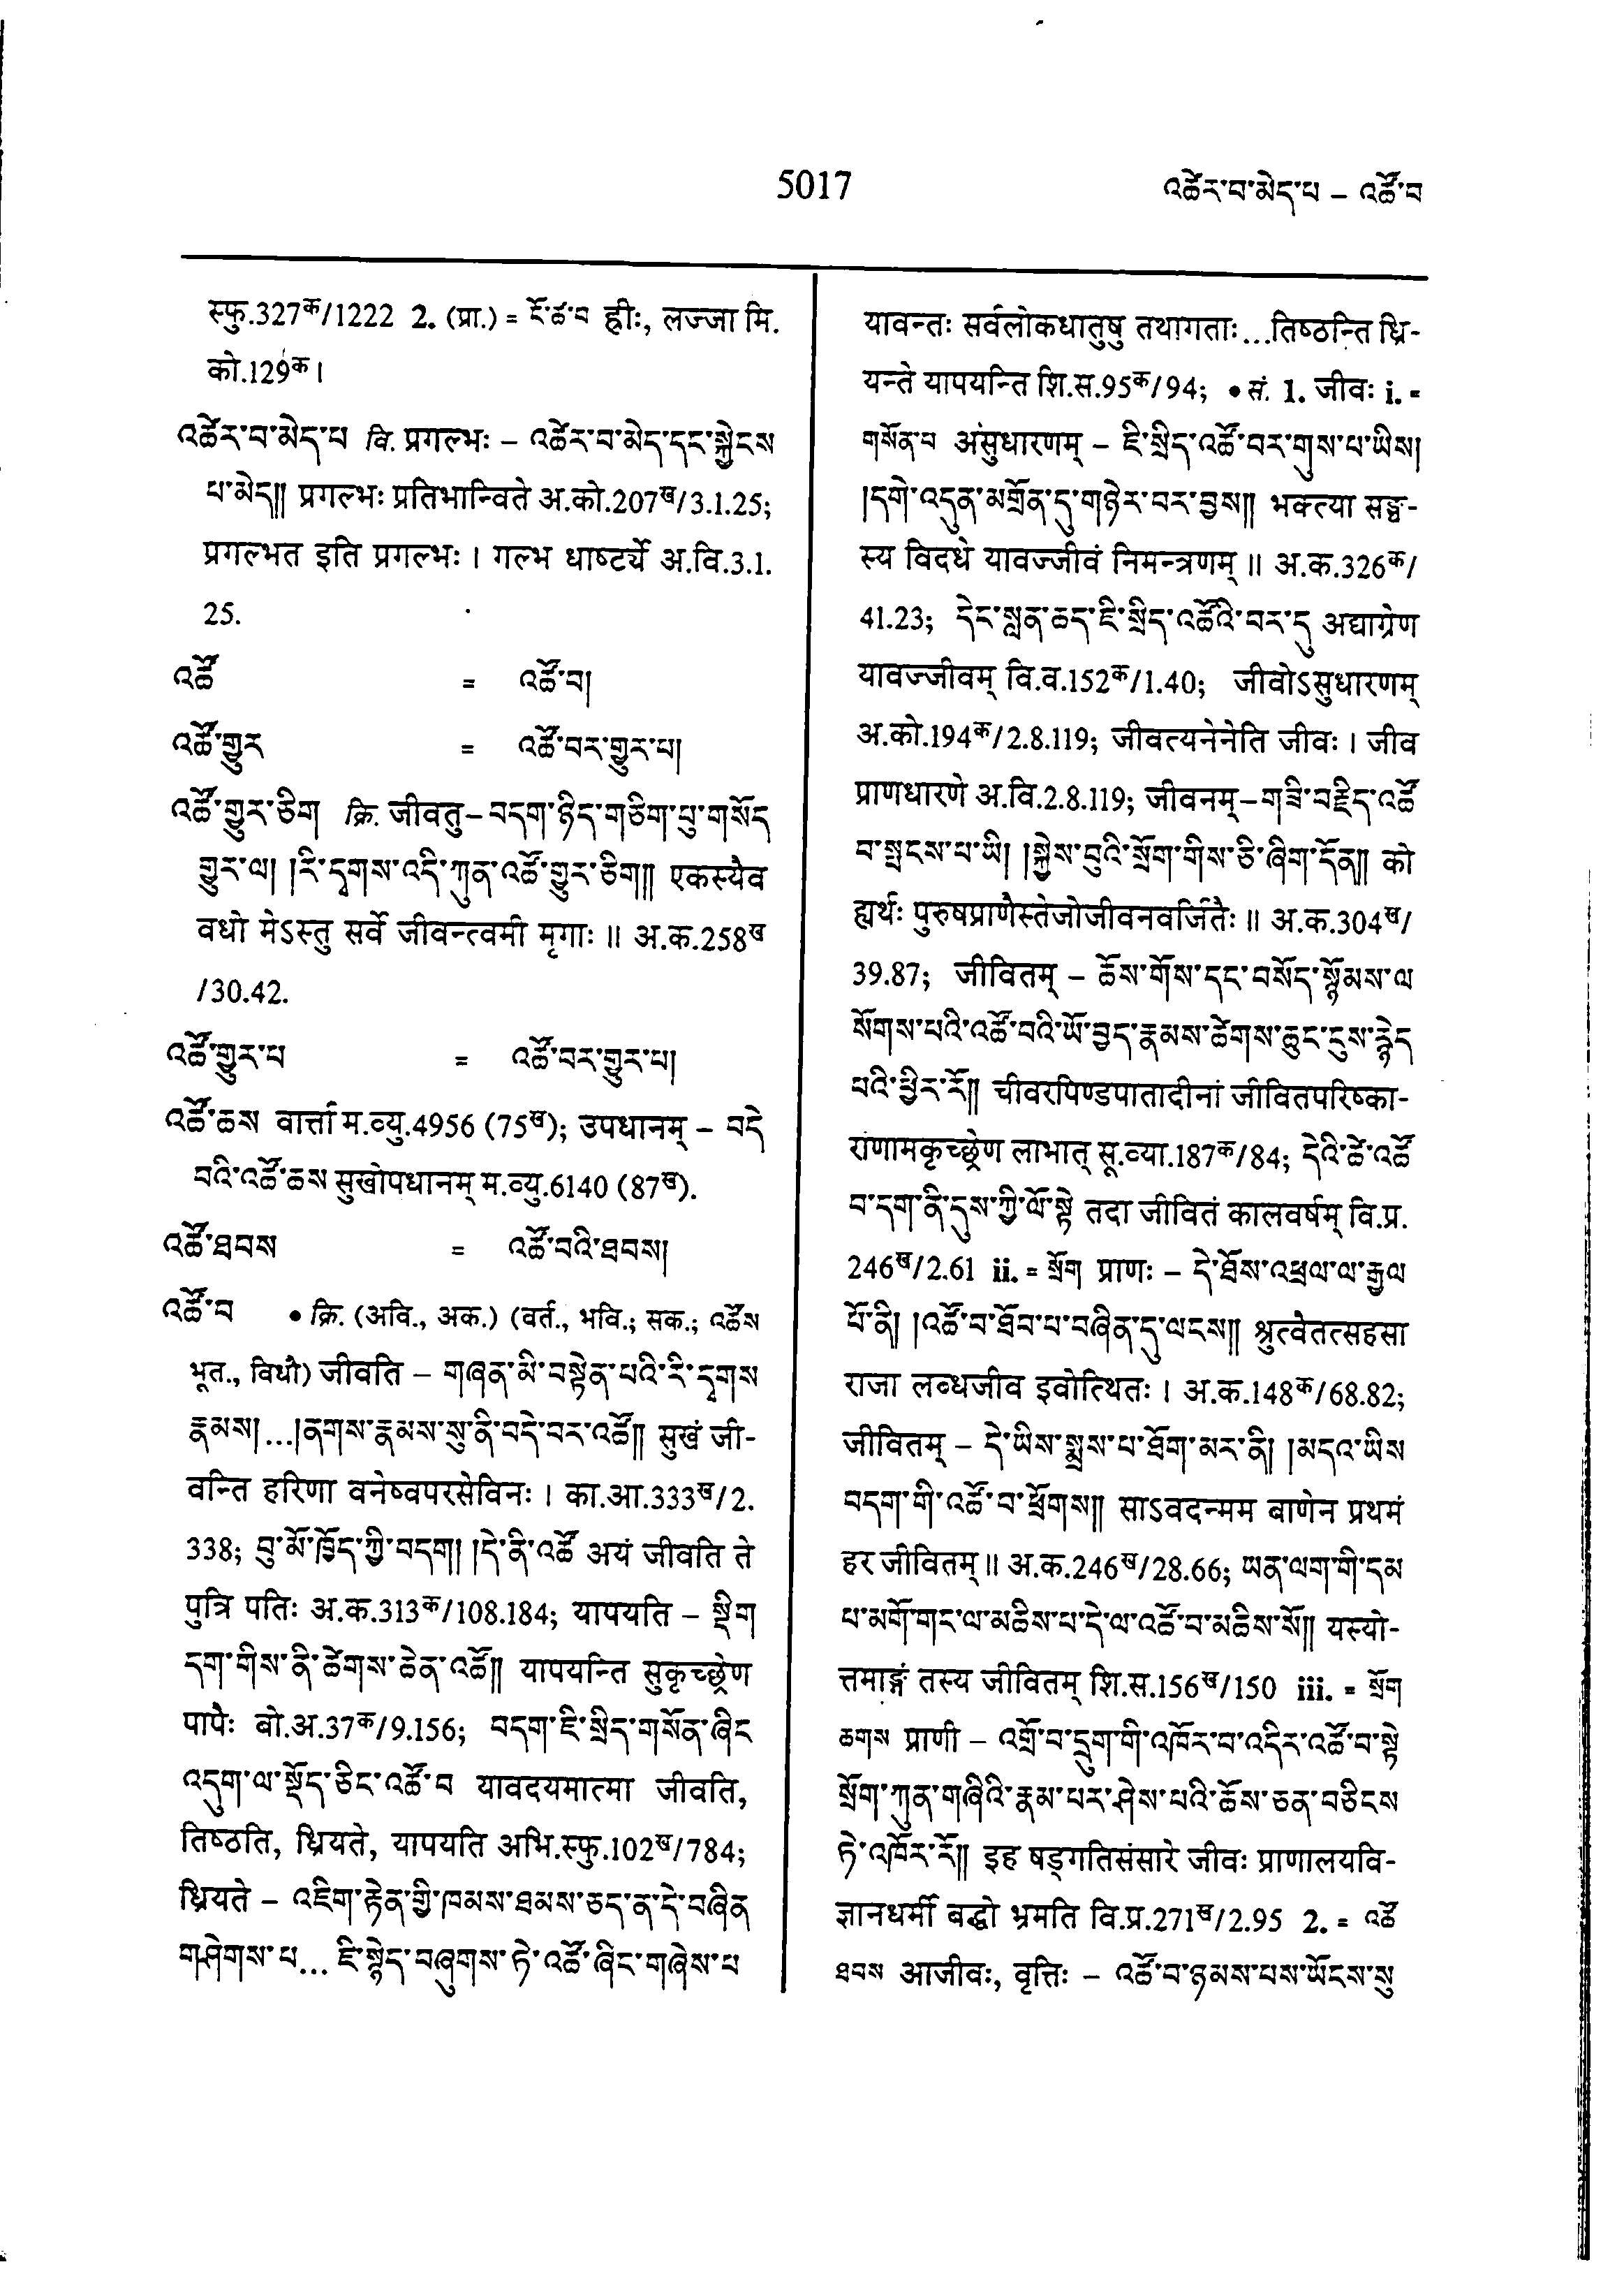 5017
འཚེར་བ་མེད་པ – འཚོ་བ
स्फु.327क/1222 2. (प्रा.) = ངོ་ཚ་བ ह्रीः, लज्जा मि.
को.129क।
འཚེར་བ་མེད་པ वि. प्रगल्भः – འཚེར་བ་མེད་དང་སྐྱེངས
པ་མེད།། प्रगल्भः प्रतिभान्विते अ.को.207ख/3.1.25;
प्रगल्भत इति प्रगल्भः । गल्भ धाष्टर्ये अ.वि.3.1.
25.
འཚོ = འཚོ་བ།
འཚོ་གྱུར = འཚོ་བར་གྱུར་པ།
འཚོ་གྱུར་ཅིག क्रि. जीवतु – བདག་ཉིད་གཅིག་པུ་གསོད
གྱུར་ལ། །རི་དྭགས་འདི་ཀུན་འཚོ་གྱུར་ཅིག།། एकस्यैव
वधो मेऽस्तु सर्वे जीवन्त्वमी मृगाः ॥ अ.क.258ख
/30.42.
འཚོ་གྱུར་པ = འཚོ་བར་གྱུར་པ།
འཚོ་ཆས वार्त्ता म.व्यु.4956 (75ख); उपधानम् – བདེ
བའི་འཚོ་ཆས सुखोपधानम् म.व्यु.6140 (87ख).
འཚོ་ཐབས = འཚོ་བའི་ཐབས།
འཚོ་བ • क्रि. (अवि., अक.) (वर्त., भवि.; सक.; འཚོས
भूत., विधौ) जीवति – གཞན་མི་བསྟེན་པའི་རི་དྭགས
རྣམས།...།ནགས་རྣམས་སུ་ནི་བདེ་བར་འཚོ།། सुखं जी-
वन्ति हरिणा वनेष्वपरसेविनः । का.आ.333ख/2.
338; བུ་མོ་ཁྱོད་ཀྱི་བདག། །དེ་ནི་འཚོ अयं जीवति ते
पुत्रि पतिः अ.क.313क/108.184; यापयति – སྡིག
དག་གིས་ནི་ཚེགས་ཆེན་འཚོ།། यापयन्ति सुकृच्छ्रेण
पापैः बो.अ.37क/9.156; བདག་ཇི་སྲིད་གསོན་ཞིང
འདུག་ལ་སྡོད་ཅིང་འཚོ་བ यावदयमात्मा जीवति,
तिष्ठति, ध्रियते, यापयति अभि.स्फु.102ख/784;
ध्रियते – འཇིག་རྟེན་གྱི་ཁམས་ཐམས་ཅད་ན་དེ་བཞིན
གཤེགས་པ... ཇི་སྙེད་བཞུགས་ཏེ་འཚོ་ཞིང་གཞེས་པ
यावन्तः सर्वलोकधातुषु तथागताः...तिष्ठन्ति ध्रि-
यन्ते यापयन्ति शि.स.95क/94; • सं. 1. जीवः i. =
གསོན་པ असुधारणम् – ཇི་སྲིད་འཚོ་བར་གུས་པ་ཡིས།
།དགེ་འདུན་མགྲོན་དུ་གཉེར་བར་བྱས།། भक्त्या सङ्घ-
स्य विदधे यावज्जीवं निमन्त्रणम् ॥ अ.क.326क/
41.23; དེང་སླན་ཆད་ཇི་སྲིད་འཚོའི་བར་དུ अद्याग्रेण
यावज्जीवम् वि.व.152क/1.40; जीवोऽसुधारणम्
अ.को.194क/2.8.119; जीवत्यनेनेति जीवः । जीव
प्राणधारणे अ.वि.2.8.119; जीवनम् – གཟི་བརྗིད་འཚོ
བ་སྤངས་པ་ཡི། །སྐྱེས་བུའི་སྲོག་གིས་ཅི་ཞིག་དོན།། को
ह्यर्थः पुरुषप्राणैस्तेजोजीवनवर्जितैः ॥ अ.क.304ख/
39.87; जीवितम् – ཆོས་གོས་དང་བསོད་སྙོམས་ལ
སོགས་པའི་འཚོ་བའི་ཡོ་བྱད་རྣམས་ཚེགས་ཆུང་ངུས་རྙེད
པའི་ཕྱིར་རོ།། चीवरपिण्डपातादीनां जीवितपरिष्का-
राणामकृच्छ्रेण लाभात् सू.व्या.187क/84; དེའི་ཚེ་འཚོ
བ་དག་ནི་དུས་ཀྱི་ལོ་སྟེ तदा जीवितं कालवर्षम् वि.प्र.
246ख/2.61 ii. = སྲོག प्राणः – དེ་ཐོས་འཕྲལ་ལ་རྒྱལ
པོ་ནི། །འཚོ་བ་ཐོབ་པ་བཞིན་དུ་ལངས།། श्रुत्वैतत्सहसा
राजा लब्धजीव इवोत्थितः । अ.क.148क/68.82;
जीवितम् – དེ་ཡིས་སྨྲས་པ་ཐོག་མར་ནི། །མདའ་ཡིས
བདག་གི་འཚོ་བ་ཕྲོགས།། साऽवदन्मम बाणेन प्रथमं
हर जीवितम् ॥ अ.क.246ख/28.66; ཡན་ལག་གི་དམ
པ་མགོ་གང་ལ་མཆིས་པ་དེ་ལ་འཚོ་བ་མཆིས་སོ།། यस्यो-
त्तमाङ्गं तस्य जीवितम् शि.स.156ख/150 iii. = སྲོག
ཆགས प्राणी – འགྲོ་བ་དྲུག་གི་འཁོར་བ་འདིར་འཚོ་བ་སྟེ
སྲོག་ཀུན་གཞིའི་རྣམ་པར་ཤེས་པའི་ཆོས་ཅན་བཅིངས
ཏེ་འཁོར་རོ།། इह षड्गतिसंसारे जीवः प्राणालयवि-
ज्ञानधर्मी बद्धो भ्रमति वि.प्र.271ख/2.95 2. = འཚོ
ཐབས आजीवः, वृत्तिः – འཚོ་བ་ཉམས་པས་ཡོངས་སུ